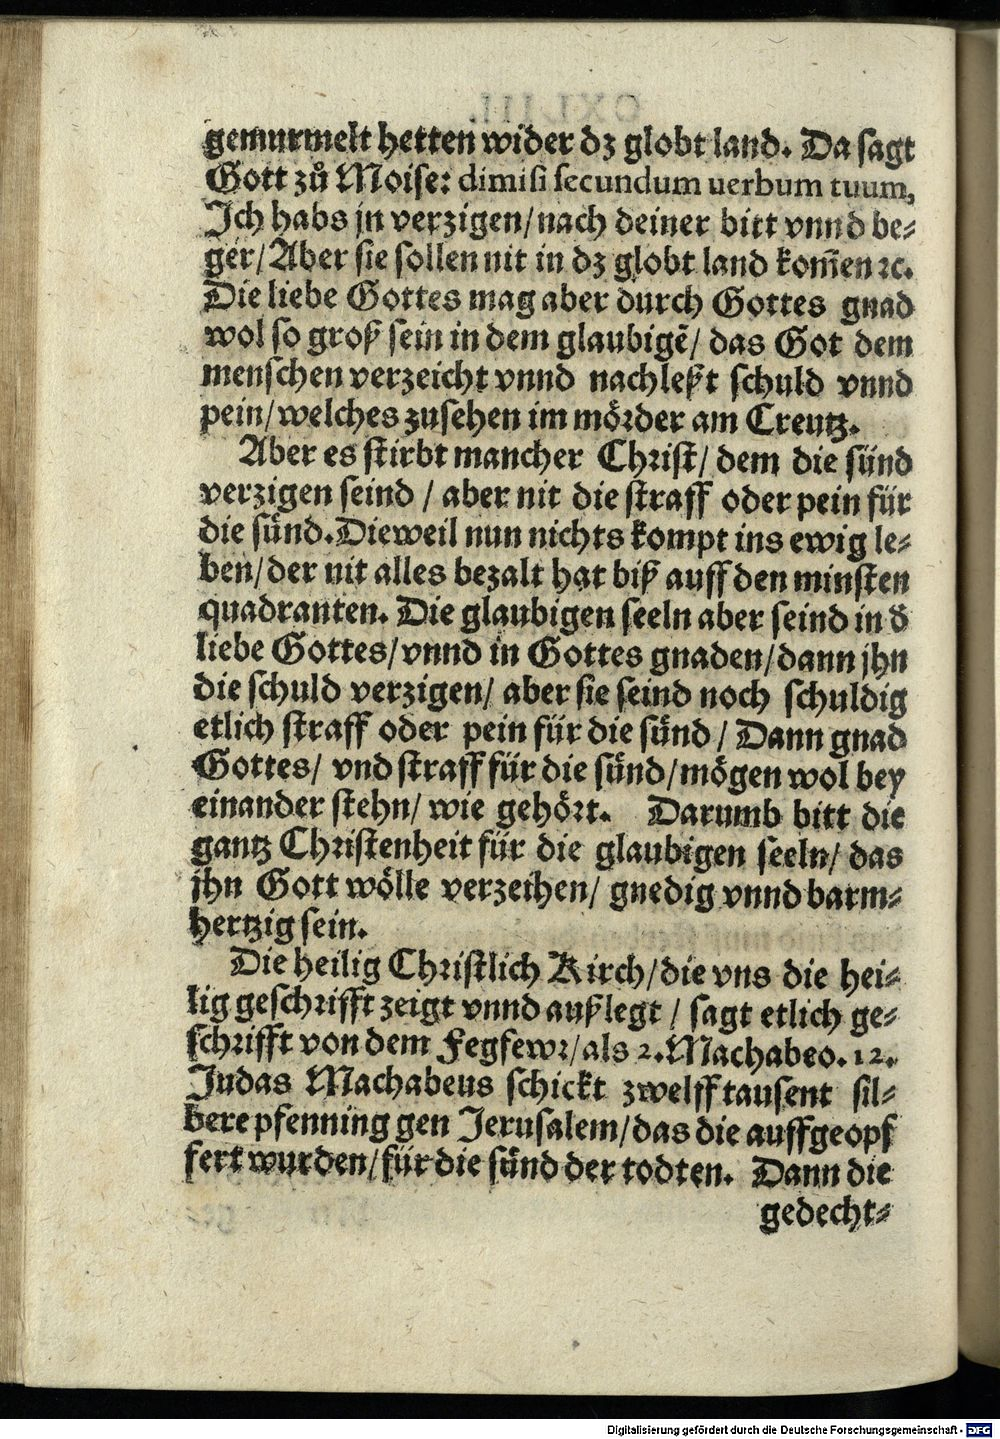 gemurmelt hetten wider dz globt land. Da sagt
Gott zů Moise: dimisi secundum uerbum tuum,
Ich habs jn verzigen/nach deiner bitt vnnd be⸗
ger/Aber sie sollen nit in dz globt land kom̃en ꝛc.
Die liebe Gottes mag aber durch Gottes gnad
wol so groß sein in dem glaubigẽ/ das Got dem
menschen verzeicht vnnd nachleßt schuld vnnd
pein/welches zusehen im mörder am Creutz.
Aber es stirbt mancher Christ/ dem die sünd
verzigen seind / aber nit die straff oder pein für
die sünd. Dieweil nun nichts kompt ins ewig le⸗
ben/der nit alles bezalt hat biß auff den minsten
quadranten. Die glaubigen seeln aber seind in ð
liebe Gottes/vnnd in Gottes gnaden/dann jhn
die schuld verzigen/ aber sie seind noch schuldig
etlich straff oder pein für die sünd / Dann gnad
Gottes/ vnd straff für die sünd/mögen wol bey
einander stehn/ wie gehört. Darumb bitt die
gantz Christenheit für die glaubigen seeln/ das
jhn Gott wölle verzeihen/ gnedig vnnd barm⸗
hertzig sein.
Die heilig Christlich Kirch/die vns die hei⸗
lig geschrifft zeigt vnnd außlegt / sagt etlich ge⸗
schrifft von dem Fegfewr/als 2. Machabeo. 12.
Judas Machabeus schickt zwelff tausent sil⸗
bere pfenning gen Jerusalem/das die auffgeopf
fert wurden/für die sünd der todten. Dann die
gedecht⸗
Digitalisierung gefördert durch die Deutsche Forschungsgemeinschaft - DFG